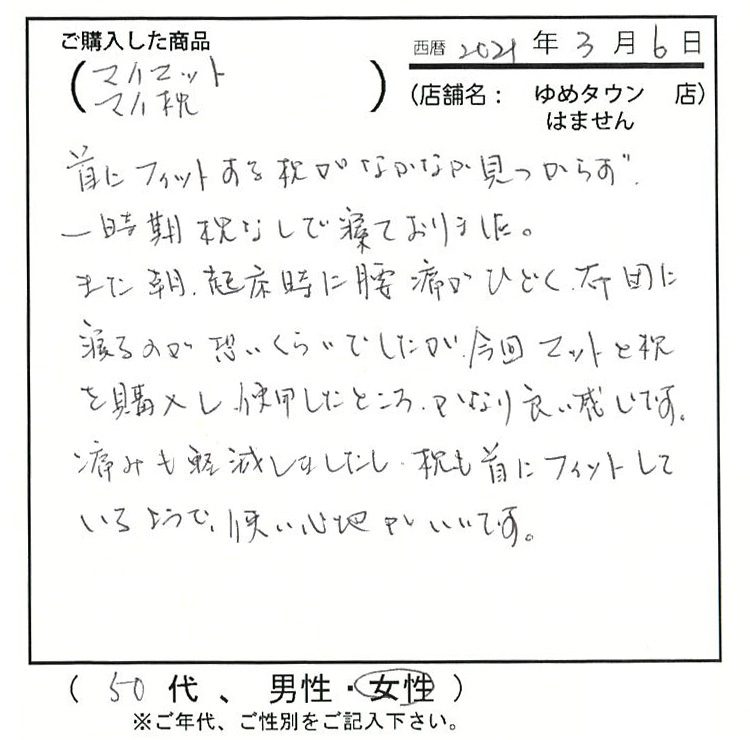 ご購入した商品
(マイマット
マイ枕)
西暦 2021 年 3 月 6 日
(店舗名： ゆめタウン 店)
はません
首にフィットする枕がなかなか見つからず、
一時期枕なしで寝ておりました。
また朝、起床時に腰痛がひどく、布団に
寝るのが恐いくらいでしたが、今回マットと枕
を購入し、使用したところ、かなり良い感じです。
痛みも軽減しましたし、枕も首にフィットして
いるようで、使い心地がいいです。
( 50 代 、 男性・女性 )
※ご年代、ご性別をご記入下さい。